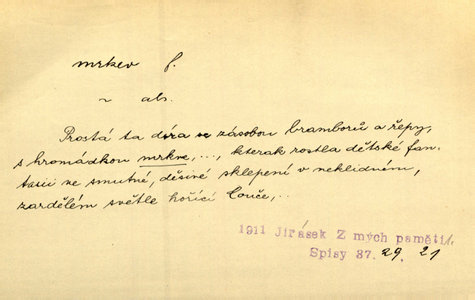 mrkev f.
~ abs.
Prostá ta díra se zásobou bramborů a řepy,
s hromádkou mrkve, ..., kterak rostla dětské fan-
tasii ve smutné, děsivé sklepení v neklidném,
zardělém světle hořící louče, ..
1911 Jirásek Z mých pamětí/1.
Spisy 37. 29. 21